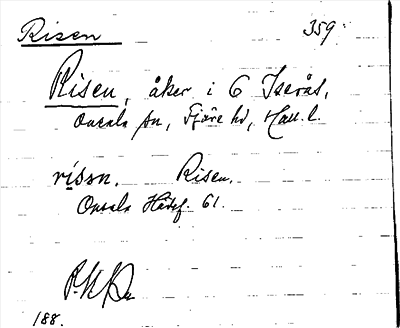 Risen 359.
Risen, åker i 6 Iserås,
Onsala sn, Fjäre hd, Hall. l.
rissn. Risen.
Onsala Hdskf. 61.
188.